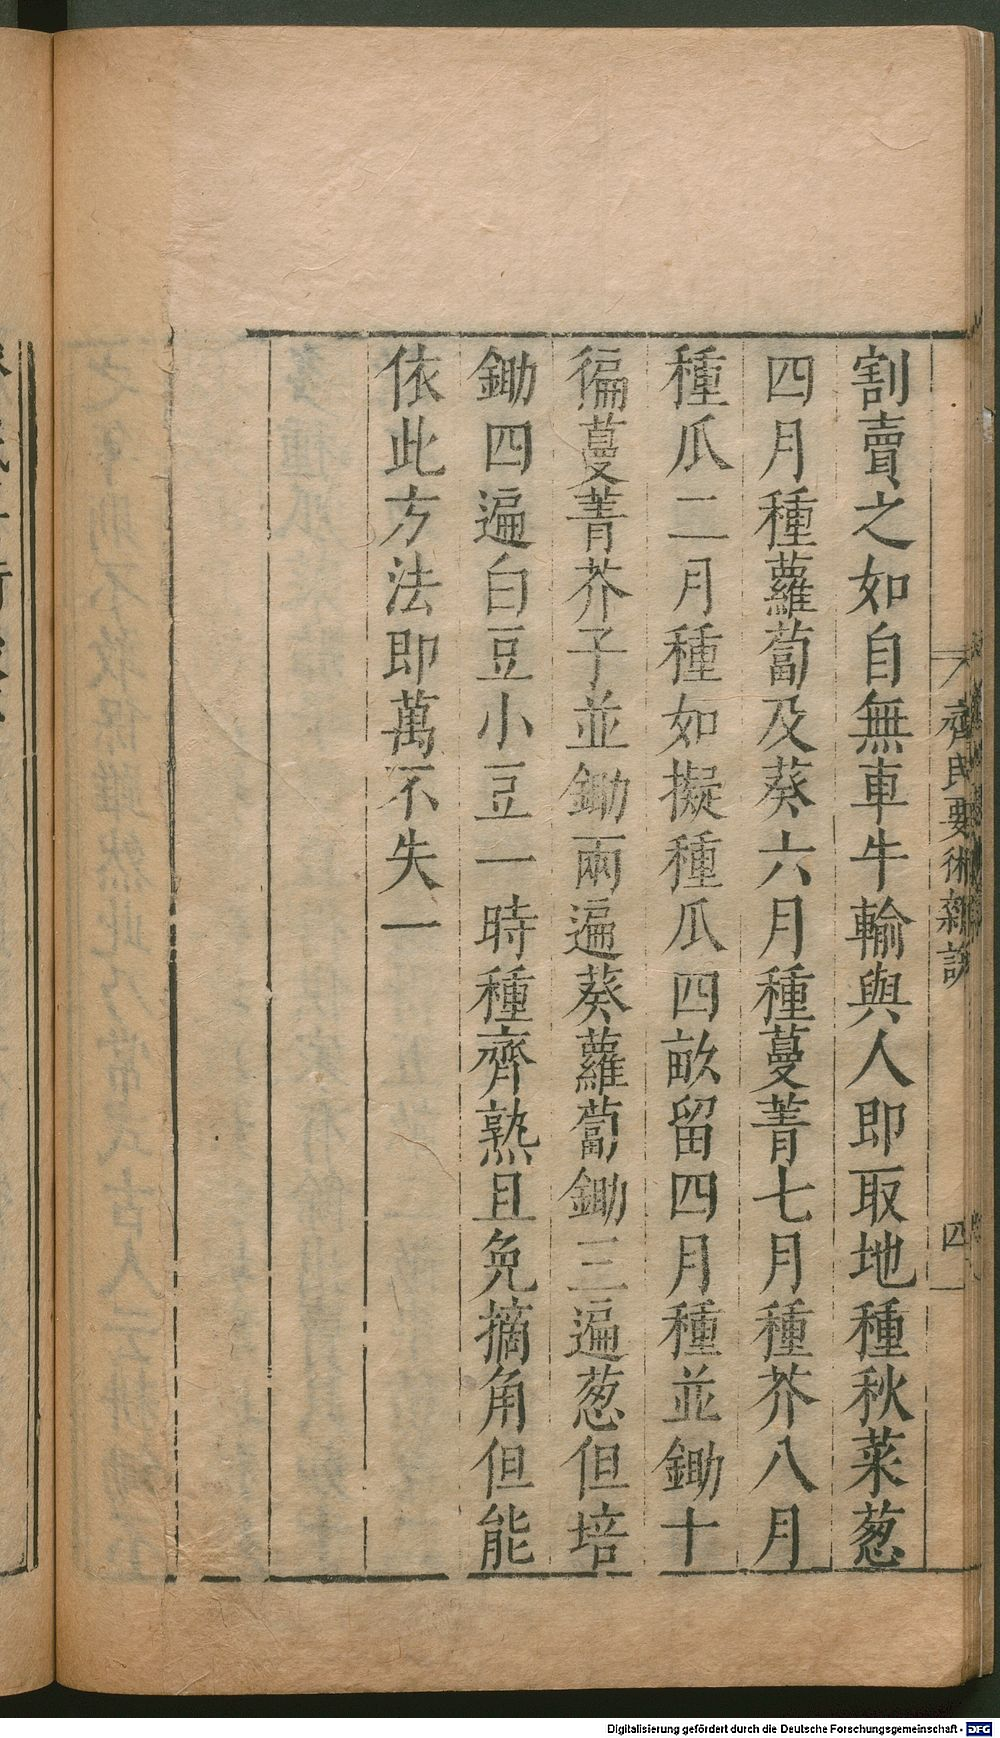 割賣之如自無車牛輸與人即取地種秋菜葱
四月種蘿蔔及葵六月種蔓菁七月種芥八月
種瓜二月種如擬種瓜四畝留四月種並鋤十
徧蔓菁芥子並鋤兩遍葵蘿蔔鋤三遍葱但培
鋤四遍白豆小豆一時種齊熟且免摘角但能
依此方法即萬不失一
齊民要術雜說
四
Digitalisierung gefördert durch die Deutsche Forschungsgemeinschaft - DFG